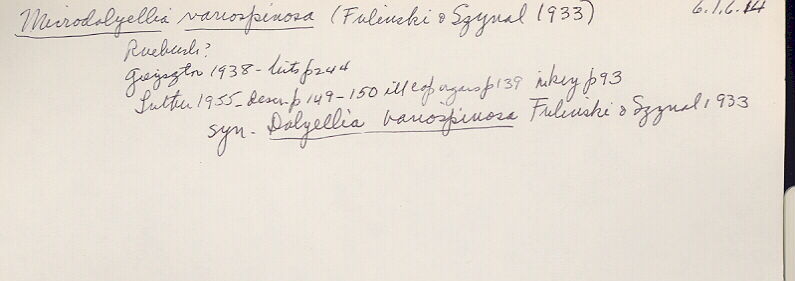 Microdalyellia variospinosa (Fulinski & Szynal 1933) 6.1.6.14
Ruebush?
Gieysztor 1938 - lists p 244
Luther 1955 - descr. p 149-150 ill cop organs p 139 in key p 93
syn. Dalyellia variospinosa Fulinski & Szynal 1933